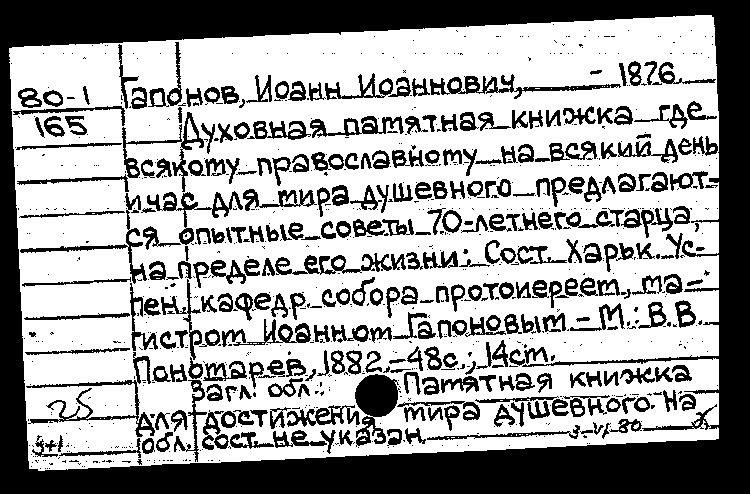 80-1 Гапонов, Иоанн Иоаннович, - 1876.
165 Духовная памятная книжка где
всякому православному на всякий день
и час для мира душевного предлагают-
ся опытные советы 70-летнего старца,
на пределе его жизни: Сост. Харьк. Ус-
пен. кафедр. собора протоиереем, ма-
гистром Иоанном Гапоновым - М.: В.В.
Пономарев, 1882.-48с.; 14см.
Загл. обл.: Памятная книжка
25 для достижения мира душевного. На
3+1 обл. сост. не указан. 3-VI-80